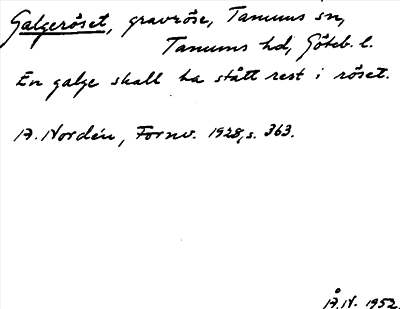 Galgeröset, gravröse, Tanums sn,
Tanums hd, Göteb. l.
En galge skall ha stått rest i röset.
A. Nordén, Fornv. 1928, s. 363.
Å.N. 1952.